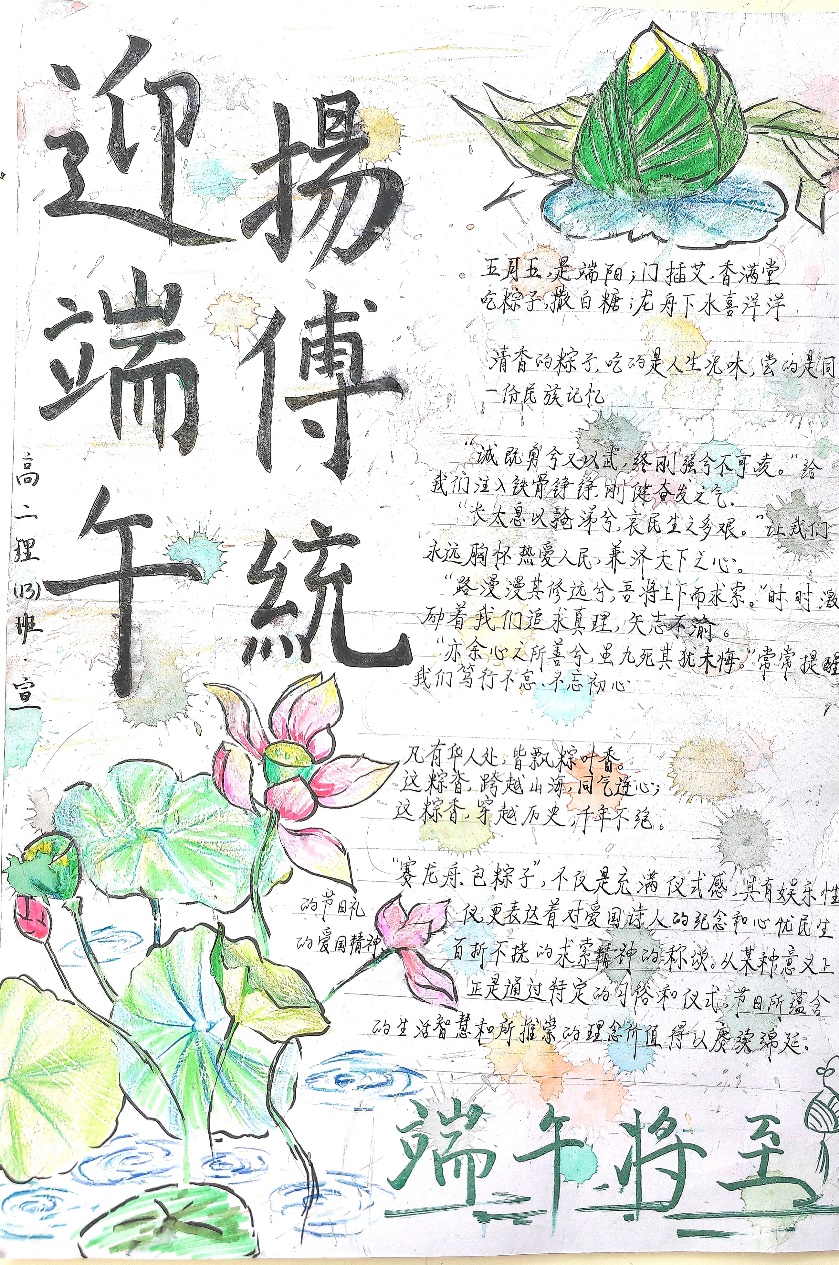 迎端午
揚傳統
高二理(13)班·宣
五月五,是端阳;门插艾,香满堂
吃粽子,撒白糖;龙舟下水喜洋洋
清香的粽子,吃的是人生况味,尝的是同
一份民族记忆
“诚既勇兮又以武,终刚强兮不可凌。”给
我们注入铁骨铮铮,刚健奋发之气.
“长太息以掩涕兮,哀民生之多艰。”让我们
永远胸怀热爱人民,兼济天下之心。
“路漫漫其修远兮,吾将上下而求索。”时时激
励着我们追求真理,矢志不渝。
“亦余心之所善兮,虽九死其犹未悔。”常常提醒
我们笃行不怠、不忘初心
凡有华人处,皆飘粽叶香。
这粽香,跨越山海,同气连心;
这粽香,穿越历史,千年不绝。
“赛龙舟、包粽子”,不仅是充满仪式感,具有娱乐性
的节日礼仪,更表达着对爱国诗人的纪念和心忧民生
的爱国精神百折不挠的求索精神的称颂。从某种意义上
正是通过特定的习俗和仪式,节日所蕴含
的生活智慧和所推崇的理念价值得以赓续绵延.
端午将至